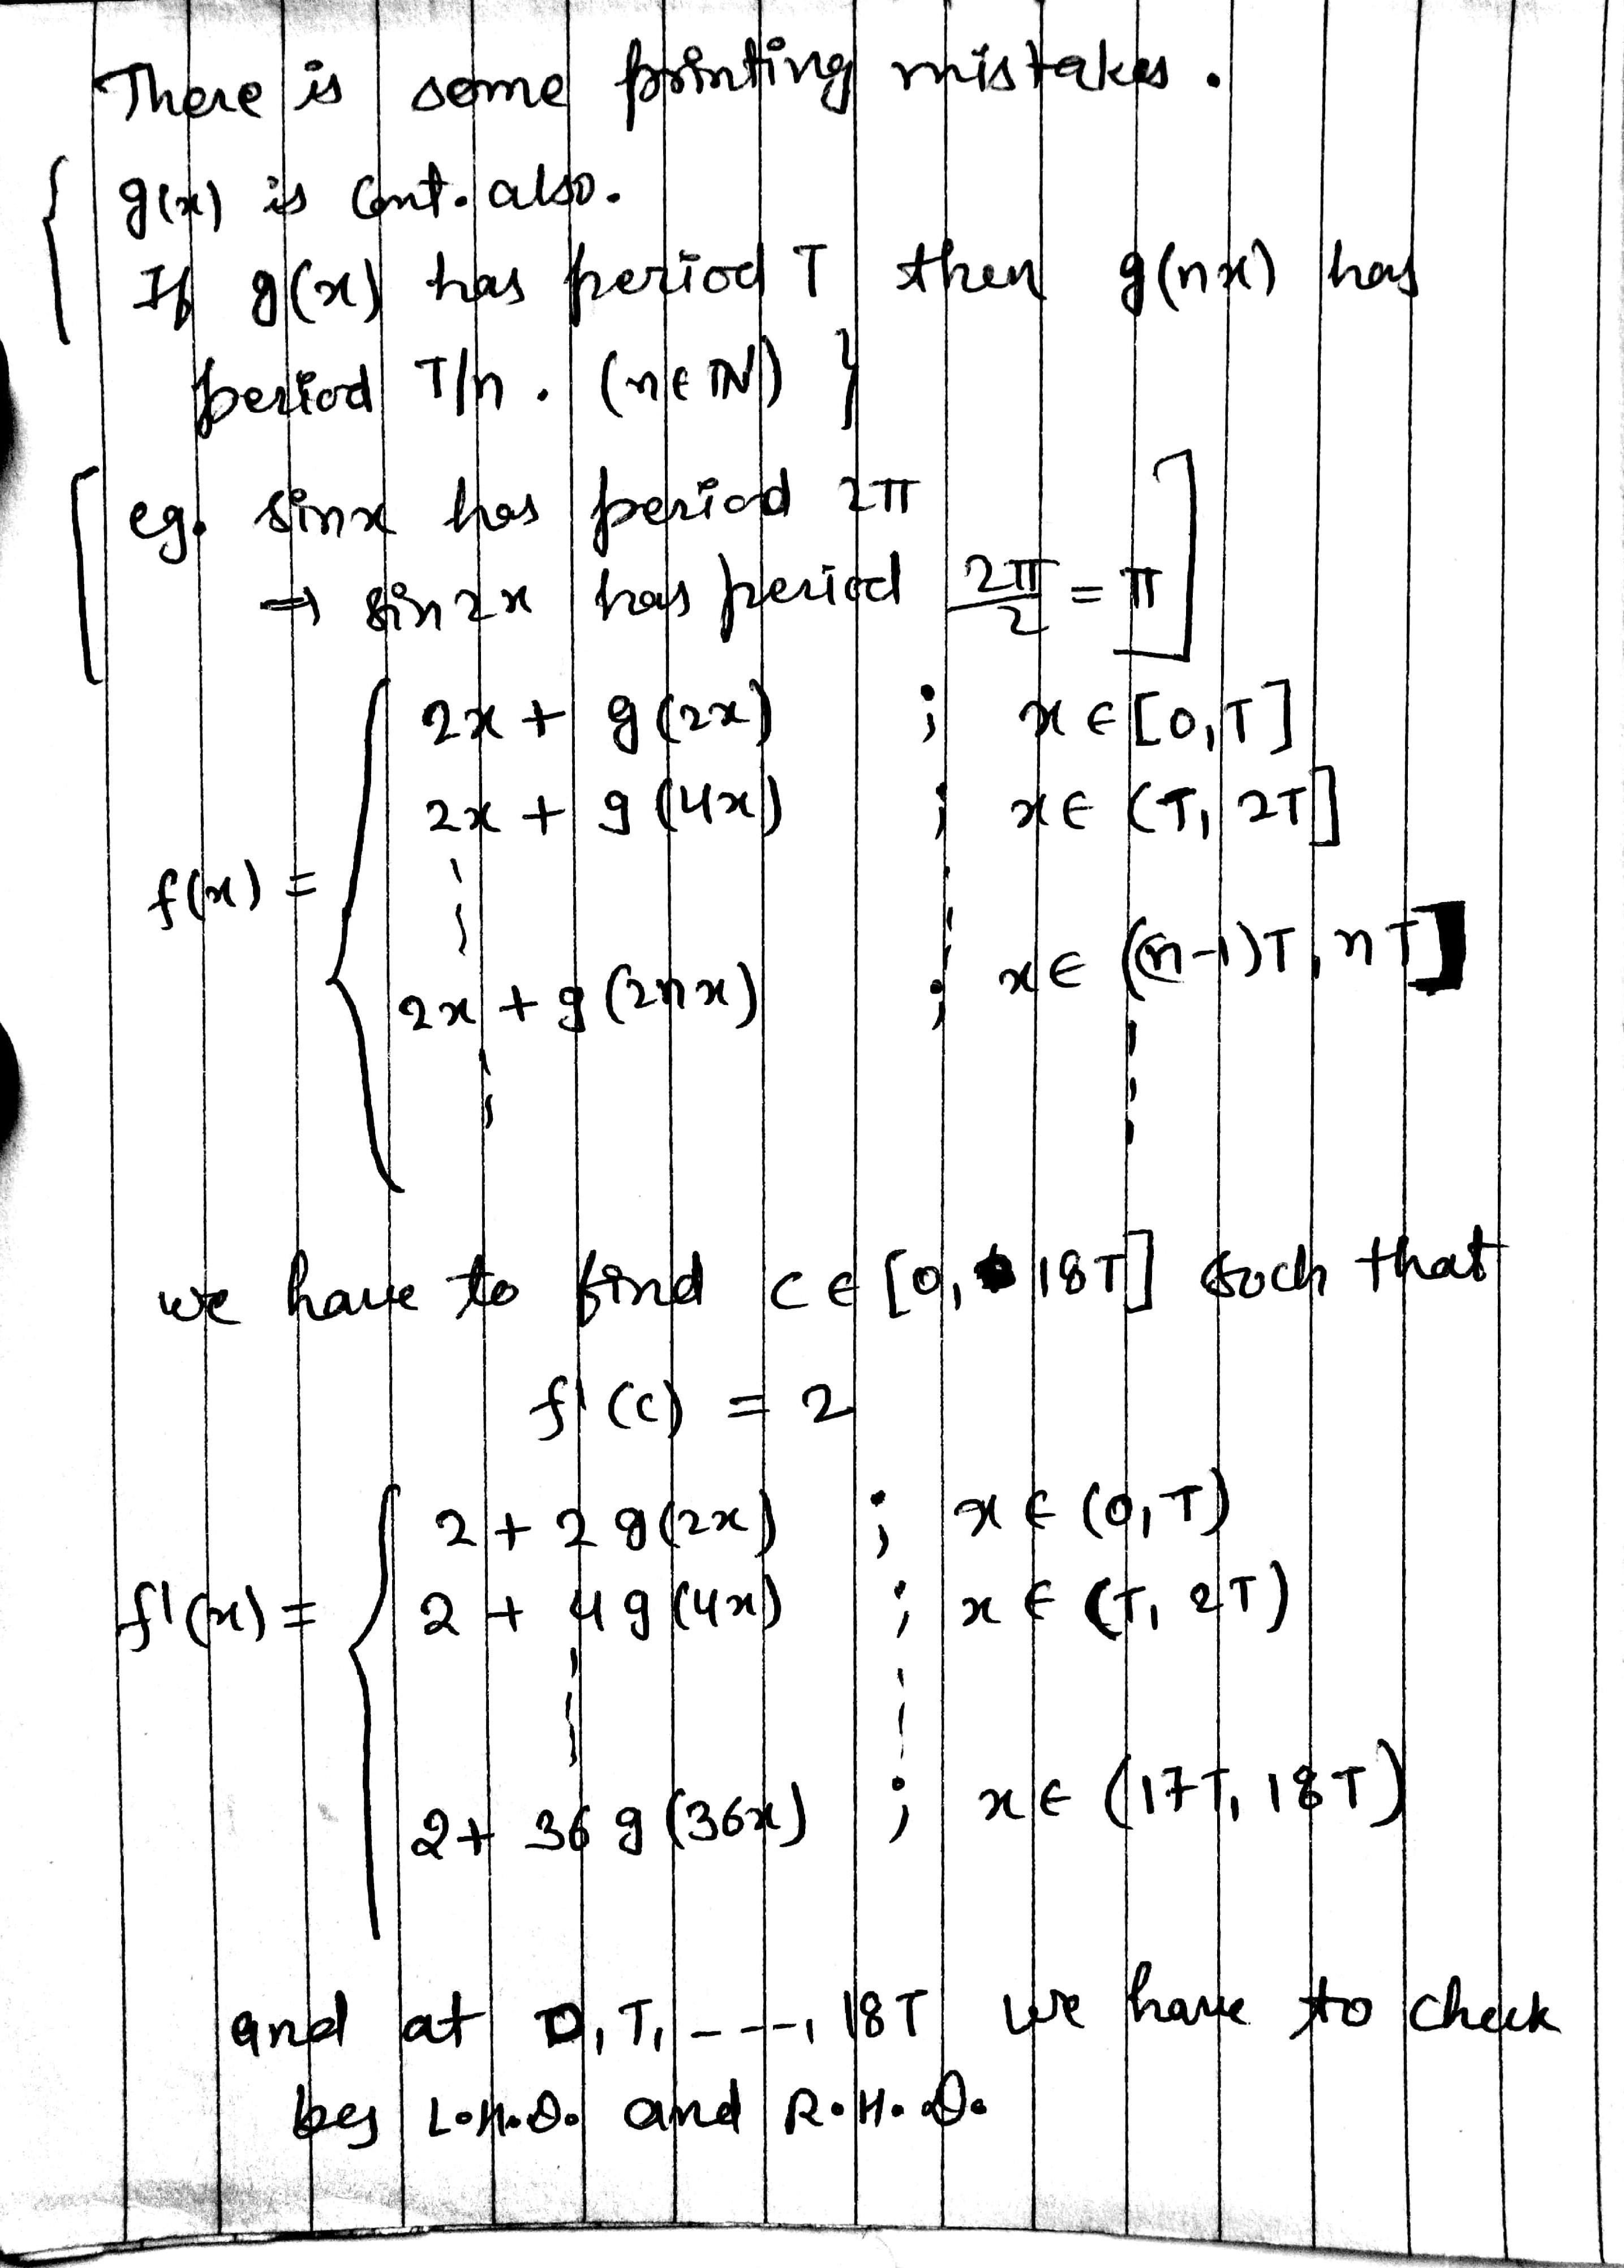 There is some printing mistakes.
{ g(x) is Cont. also.
If g(x) has period T then g(nx) has
period T/n. (n∈ℕ) }
[ eg. sinx has period 2π
⇒ sin2x has period 2π/2 = π ]
2x + g(2x) ; x ∈ [0,T]
2x + g(4x) ; x ∈ (T, 2T]
f(x) = {
2x + g(2nx) ; x ∈ ((n-1)T, nT]
we have to find c ∈ [0, 18T] such that
f'(c) = 2
2 + 2 g(2x) ; x ∈ (0,T)
f'(x) = { 2 + 4 g(4x) ; x ∈ (T, 2T)
2 + 36 g(36x) ; x ∈ (17T, 18T)
and at 0, T, ---, 18T we have to check
L.H.D. and R.H.D.